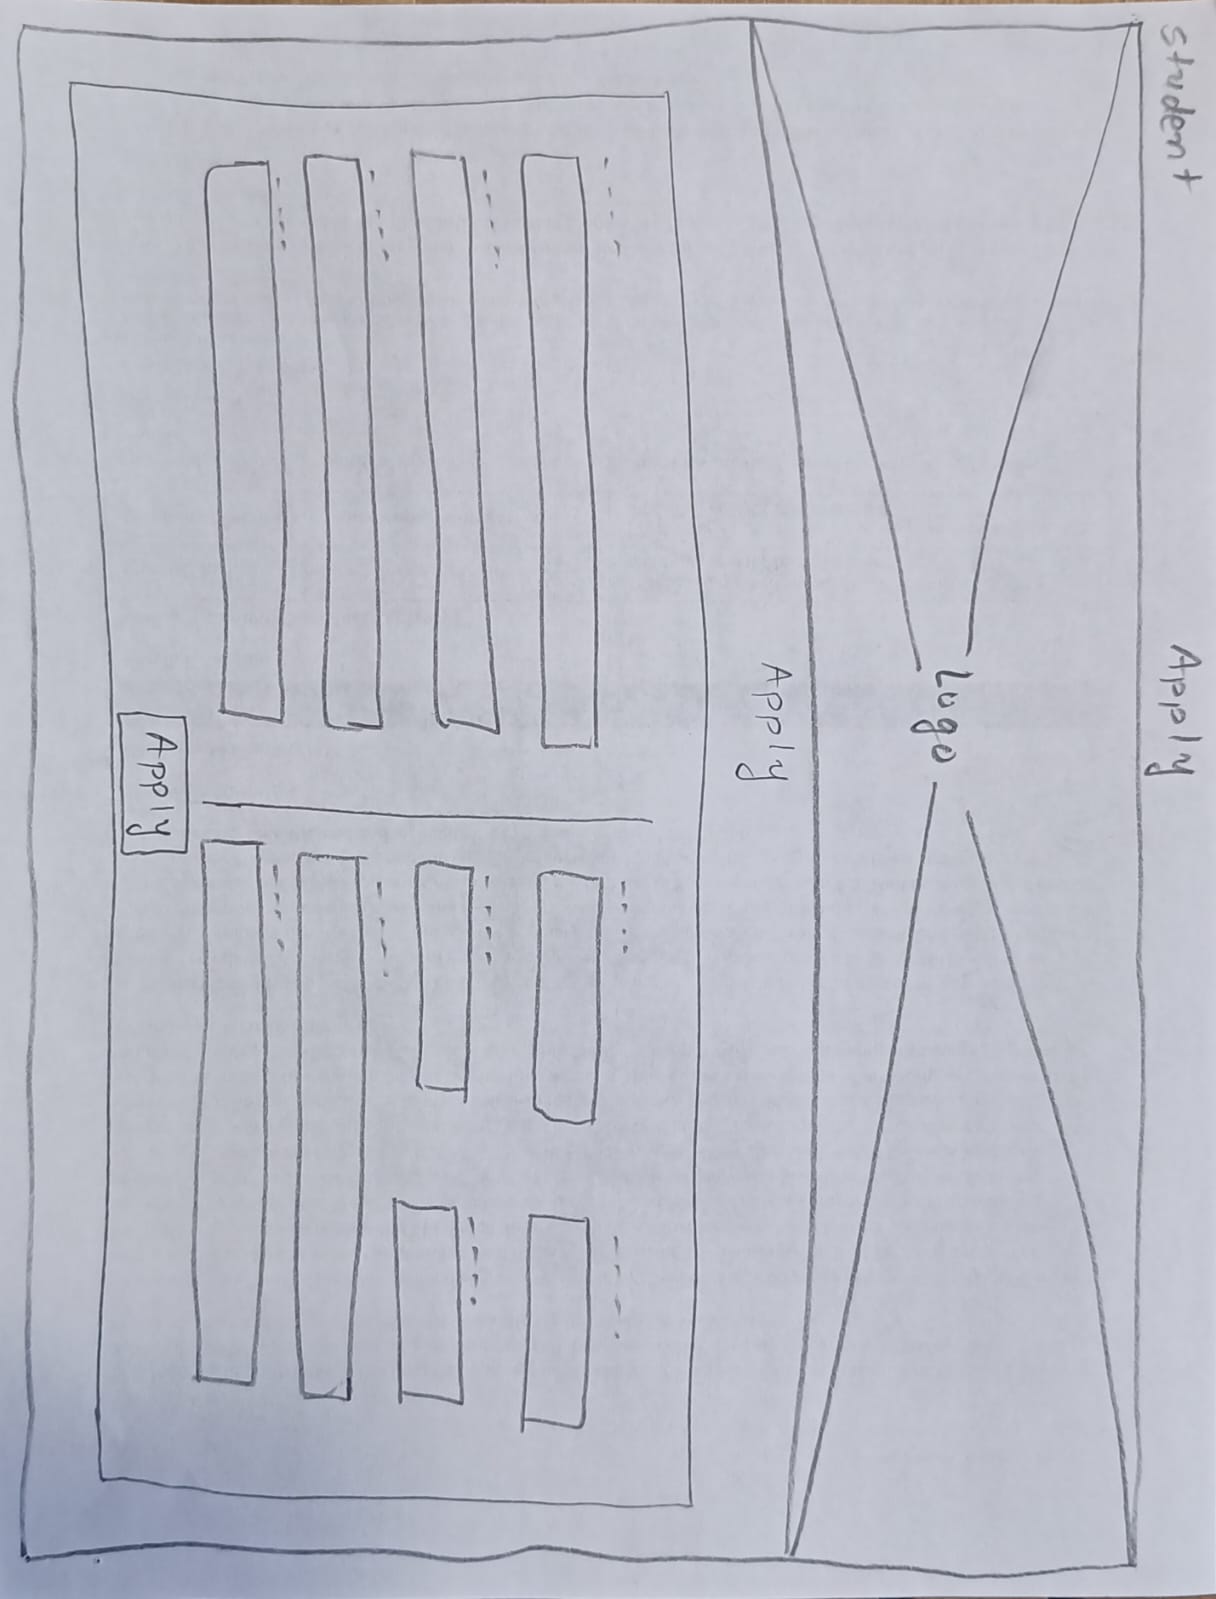 Student
Apply
Logo
Apply
Apply